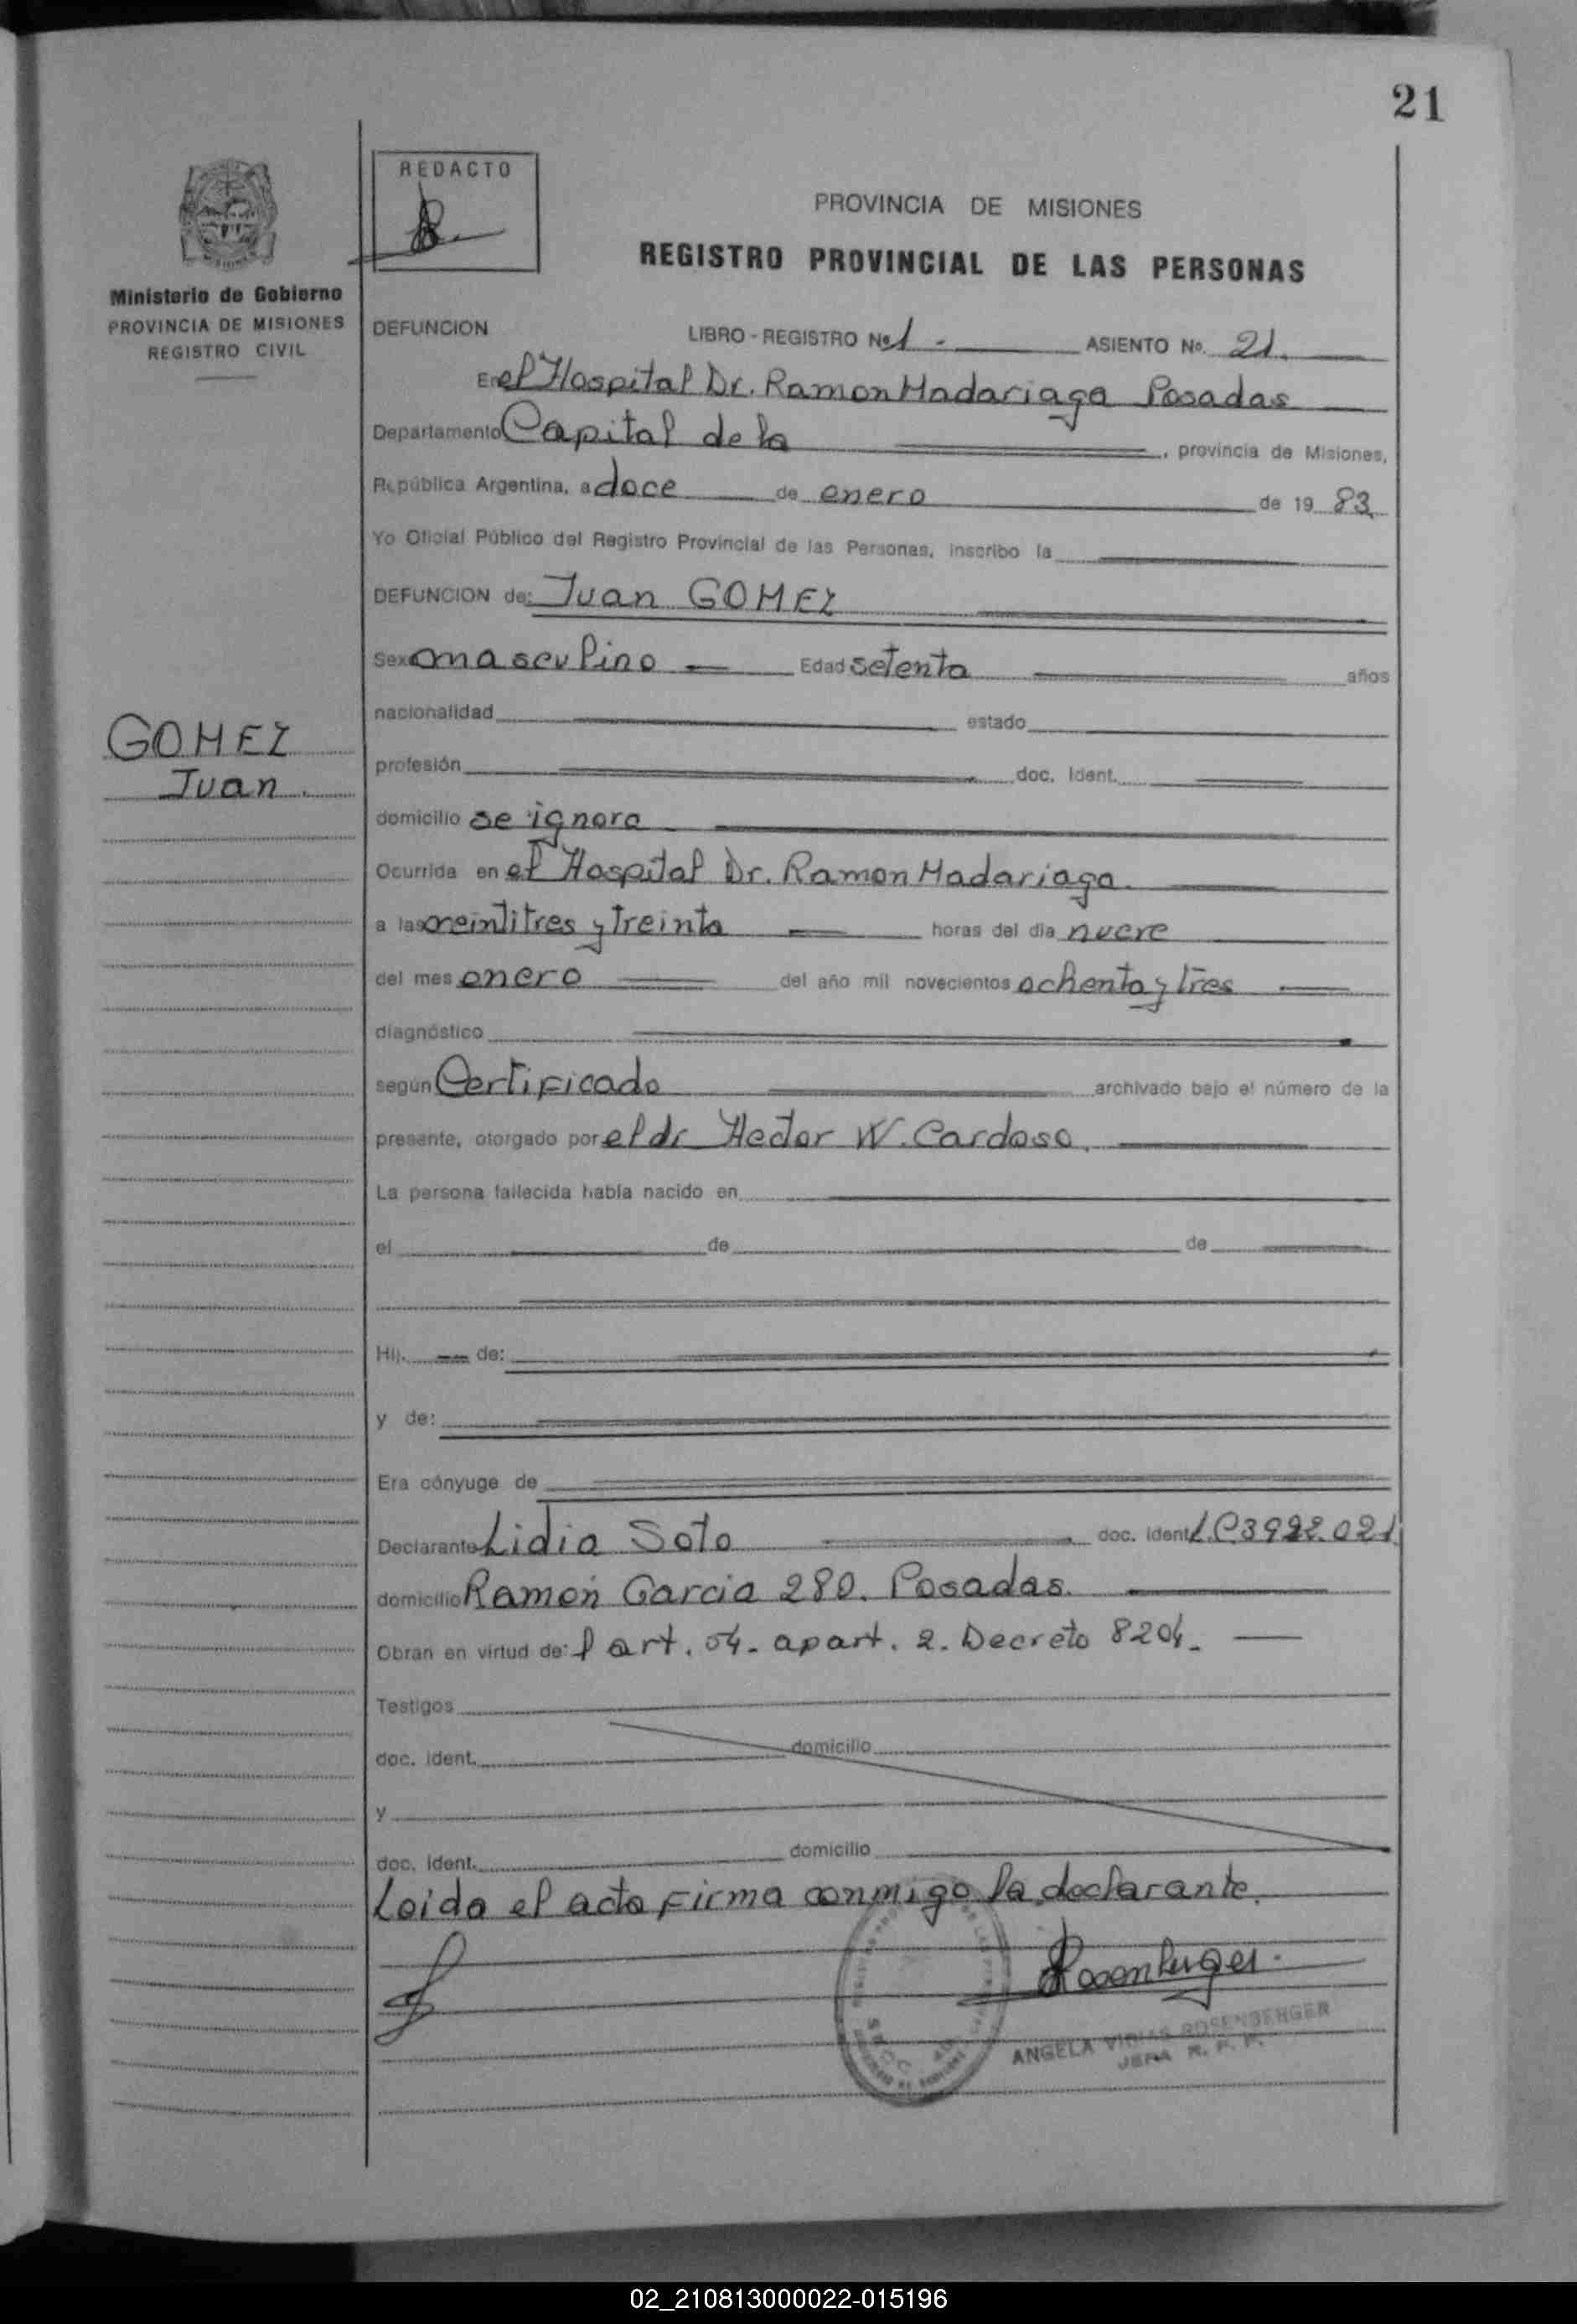 21
REDACTO
PROVINCIA DE MISIONES
REGISTRO PROVINCIAL DE LAS PERSONAS
Ministerio de Gobierno
PROVINCIA DE MISIONES
REGISTRO CIVIL
DEFUNCION LIBRO - REGISTRO Nº 1 - ASIENTO Nº. 21.
En el Hospital Dr. Ramon Madariaga Posadas
Departamento Capital de la , provincia de Misiones,
República Argentina, a doce de enero de 19 83
Yo Oficial Público del Registro Provincial de las Personas, inscribo la
DEFUNCION de: Juan GOMEZ
Sexo masculino Edad setenta años
nacionalidad estado
GOMEZ
Juan.
profesión doc. Ident.
domicilio se ignora
Ocurrida en el Hospital Dr. Ramon Madariaga.
a las veintitres y treinta horas del día nueve
del mes enero del año mil novecientos ochenta y tres
diagnóstico
según Certificado archivado bajo el número de la
presente, otorgado por el dr Hector W. Cardoso.
La persona fallecida había nacido en
el de de
Hij. de:
y de:
Era cónyuge de
Declarante Lidia Soto doc. Ident. L.C 3922.021
domicilio Ramón Garcia 280. Posadas.
Obran en virtud de: l art. 54. apart. 2. Decreto 8204.
Testigos
doc. Ident. domicilio
y
doc. Ident. domicilio
Leida el acta firma conmigo la declarante.
Rosenberger.
ANGELA ROSENBERGER
JEFA R. P. P.
02_210813000022-015196